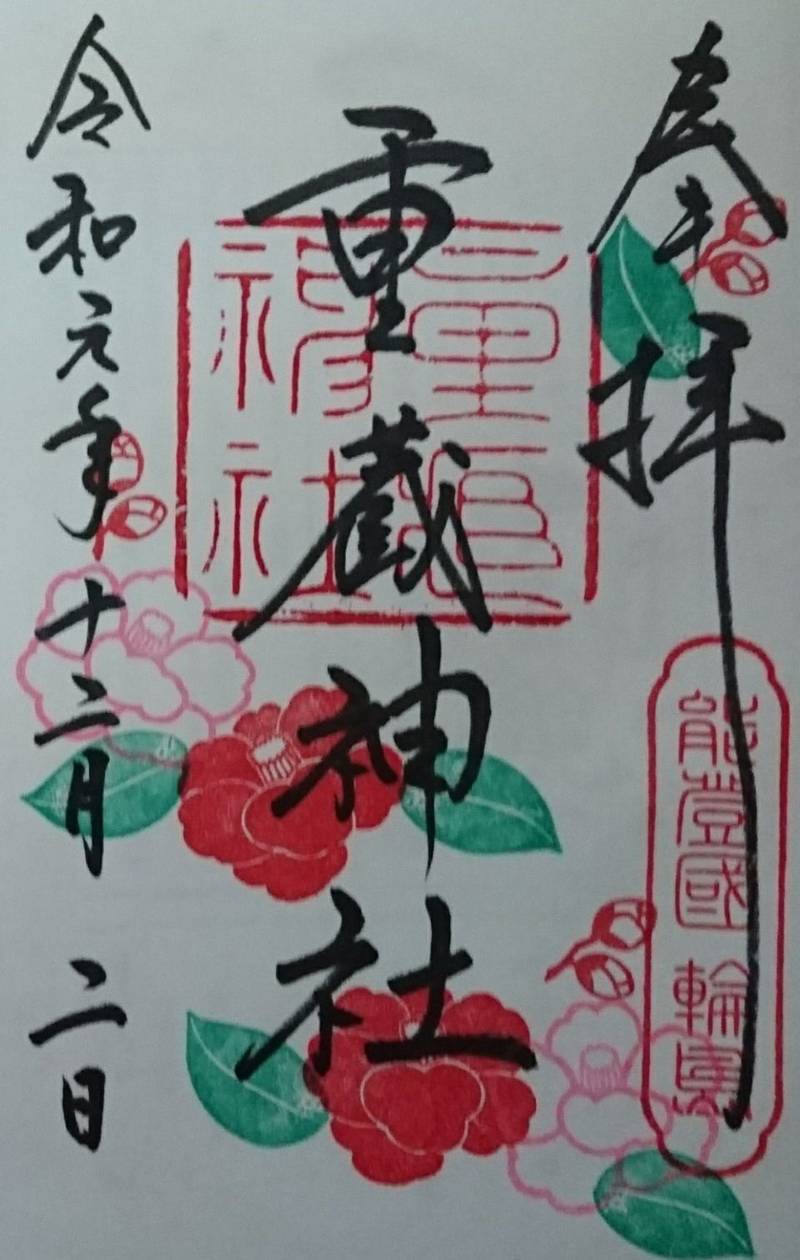 奉拝
能登國 輪島
重蔵神社
重蔵神社
令和元年十二月二日